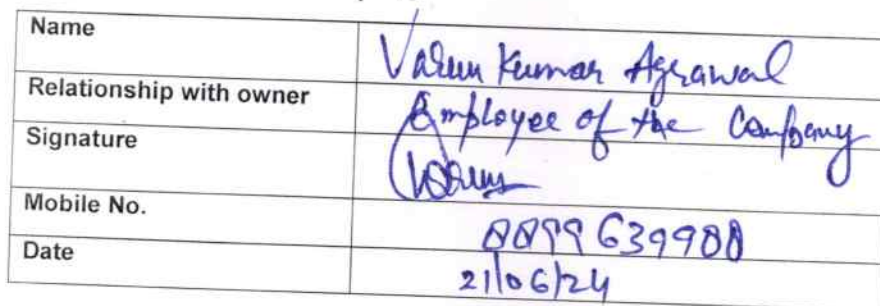 Name Varun Kumar Agrawal
Relationship with owner Employee of the Company
Signature Varun
Mobile No.
Date 21/06/24